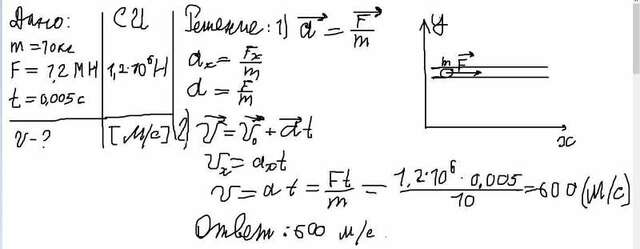 Дано:
m = 10кг
F = 1,2 МН
t = 0,005 с
v - ?
СИ
1,2·10⁶Н
[М/с]
Решение: 1) a⃗ = F⃗/m
aₓ = Fₓ/m
a = F/m
2) v⃗ = v⃗₀ + a⃗t
vₓ = aₓt
v = at = Ft/m = 1,2·10⁶·0,005/10 = 600 (М/с)
Ответ: 600 м/с.
y
m F⃗
x